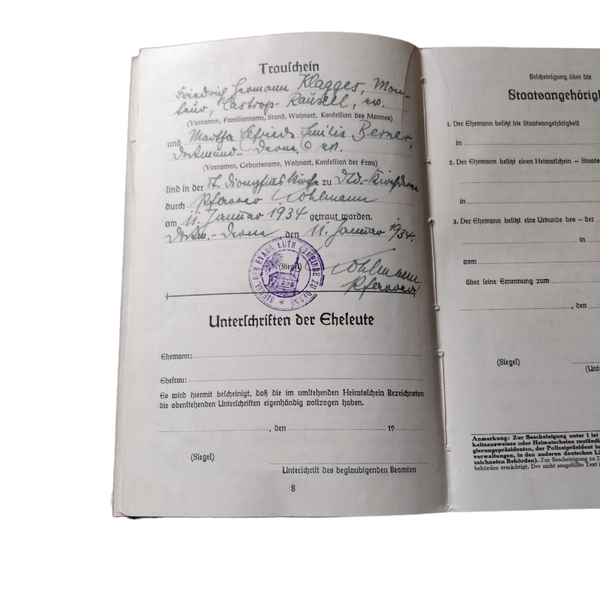 Trauschein
Friedrich Hermann Klagges, Mon-
teur, Castrop-Rauxel, ev.
(Vornamen, Familiennamen, Stand, Wohnort, Konfession des Mannes)
und Martha Elfriede Emilie Berner,
Dortmund-Derne, ev.
(Vornamen, Geburtsname, Wohnort, Konfession der Frau)
sind in der St. Dionysiuskirche zu Dtd.-Kirchderne
durch Pfarrer
am 11. Januar 1934 getraut worden.
Dortm.-Derne, den 11. Januar 1934.
(Siegel)
Pfarrer
Unterschriften der Eheleute
Ehemann:
Ehefrau:
Es wird hiermit bescheinigt, daß die im umstehenden Heiratsschein Bezeichneten
die obenstehenden Unterschriften eigenhändig vollzogen haben.
, den 19
(Siegel)
Unterschrift des beglaubigenden Beamten
8
Bescheinigung über die
Staatsangehörig
1. Der Ehemann besitzt die Staatsangehörigkeit
in
2. Der Ehemann besitzt einen Heimatschein – Staats
in
3. Der Ehemann besitzt eine Urkunde des – der
in
vom
über seine Ernennung zum
, den
(Siegel)
(Unt
Anmerkung: Zur Bescheinigung unter 1 ist
keitsausweises oder Heimatscheins zuständi
gierungspräsidenten, der Polizeipräsident in
verwaltungen, in den anderen deutschen Lä
zeichneten Behörden). Zur Bescheinigung zu 2
behörden ermächtigt. Der nicht ausgefüllte Text i